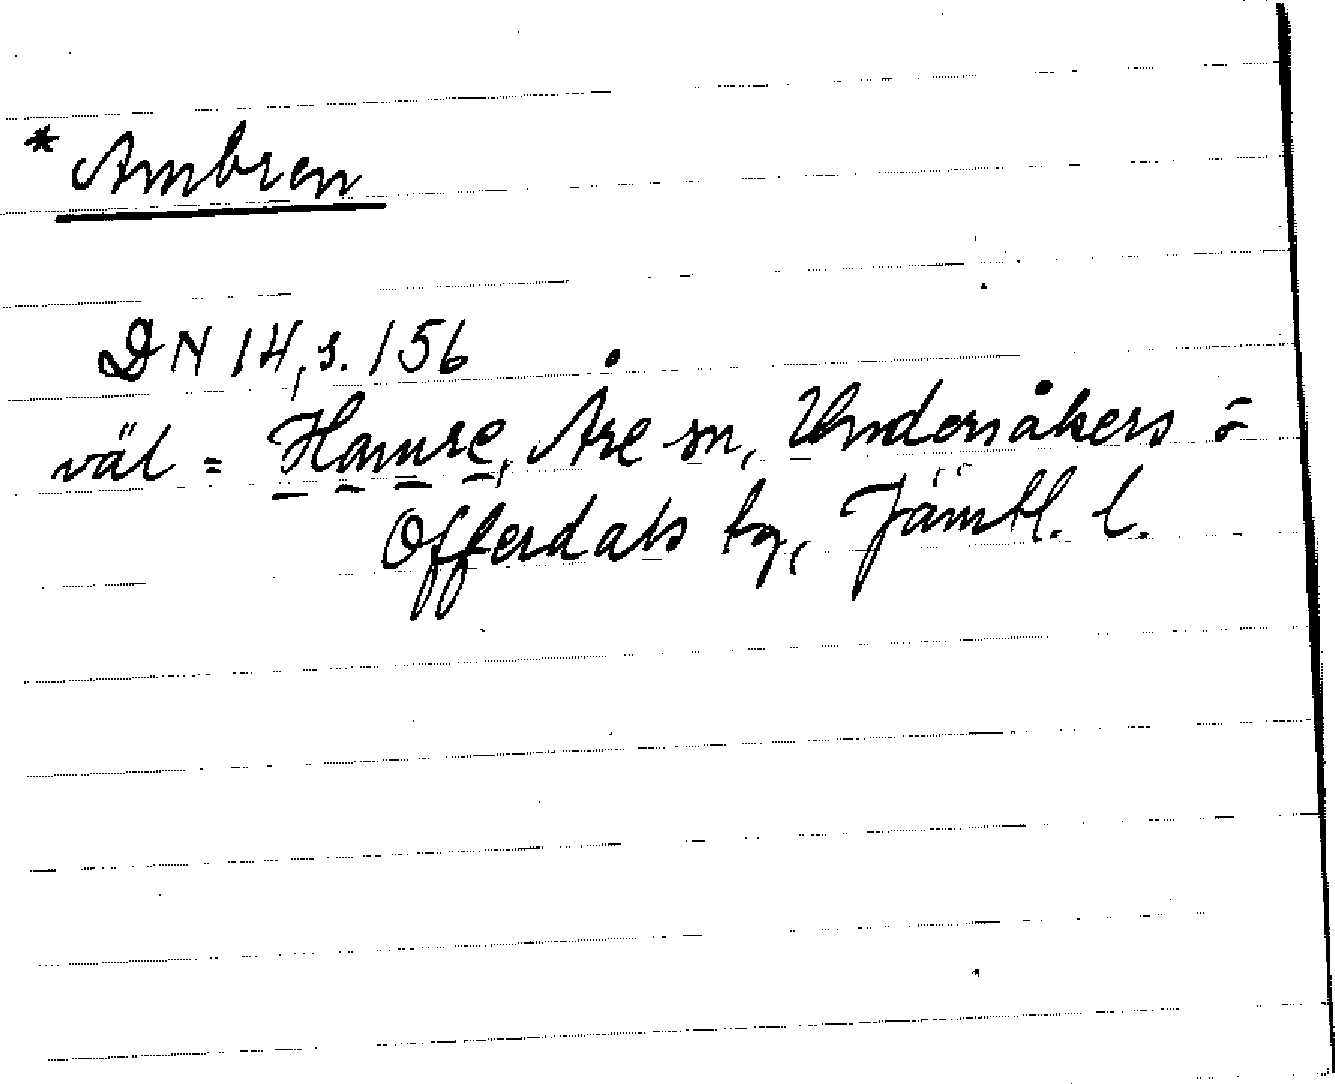 * Ambren
DN 14, s. 156
väl = Hamre, Åre sn, Undersåkers o
Offerdals tg, Jämtl. l.